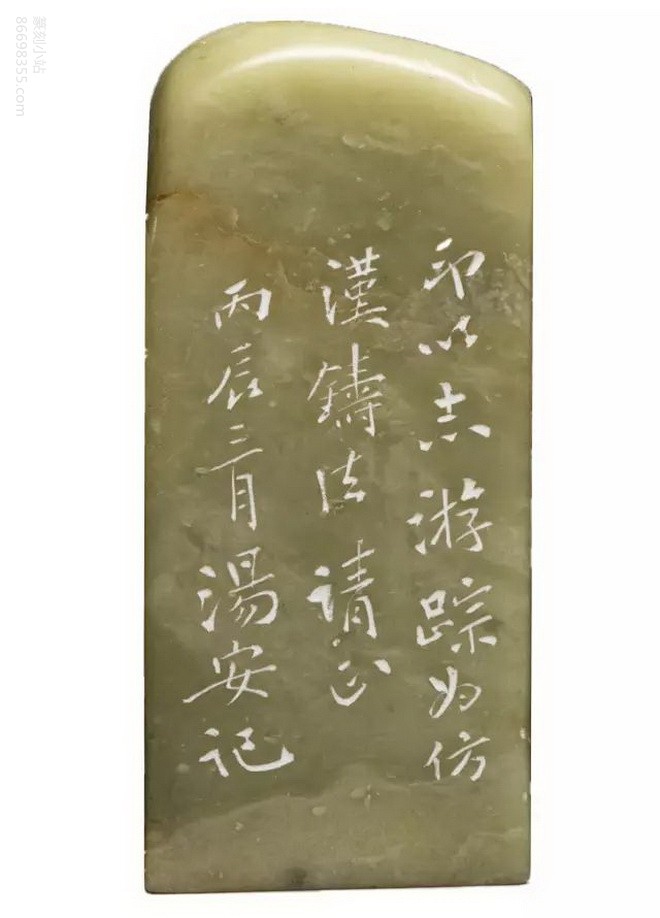 印以志游踪为仿
漢鑄法請正
丙辰三月湯安記
篆刻小站
86698355.com